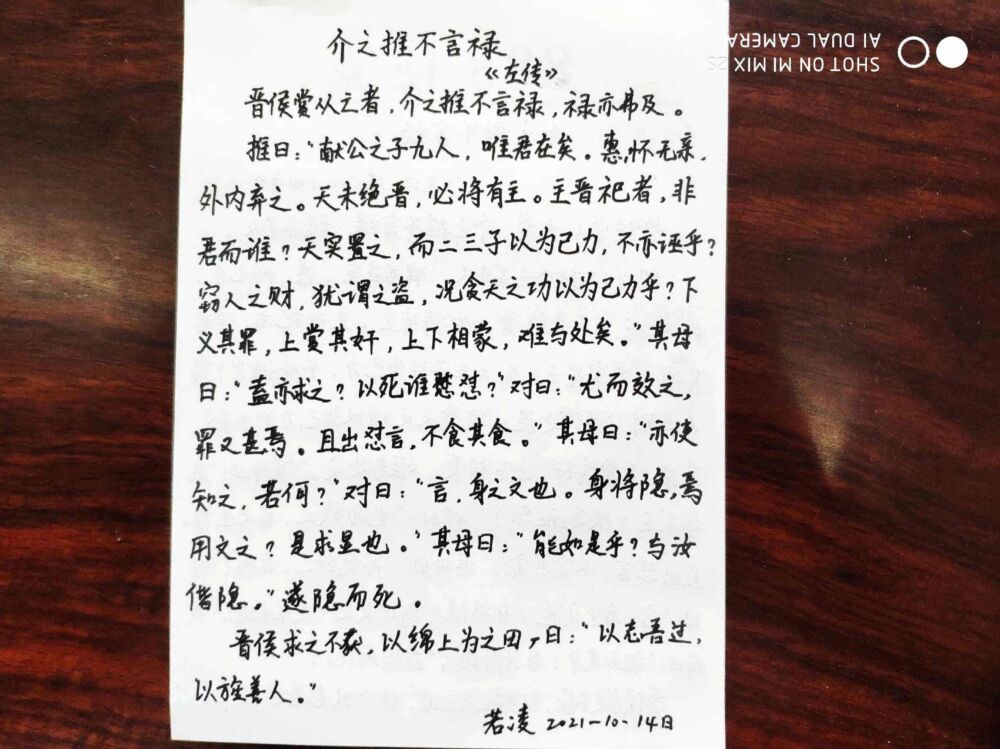 介之推不言禄
《左传》
晋侯赏从亡者，介之推不言禄，禄亦弗及。
推曰："献公之子九人，唯君在矣。惠，怀无亲，
外内弃之。天未绝晋，必将有主。主晋祀者，非
君而谁？天实置之，而二三子以为己力，不亦诬乎？
窃人之财，犹谓之盗，况贪天之功以为己力乎？下
义其罪，上赏其奸，上下相蒙，难与处矣。"其母
曰："盍亦求之？以死谁憝怼？"对曰："尤而效之，
罪又甚焉。且出怼言，不食其食。"其母曰："亦使
知之，若何？"对曰："言，身之文也。身将隐，焉
用文之？是求显也。"其母曰："能如是乎？与汝
偕隐。"遂隐而死。
晋侯求之不获，以绵上为之田，曰："以志吾过，
以旌善人。"
若凌 2021-10-14日
SHOT ON MI MIX 2S
AI DUAL CAMERA